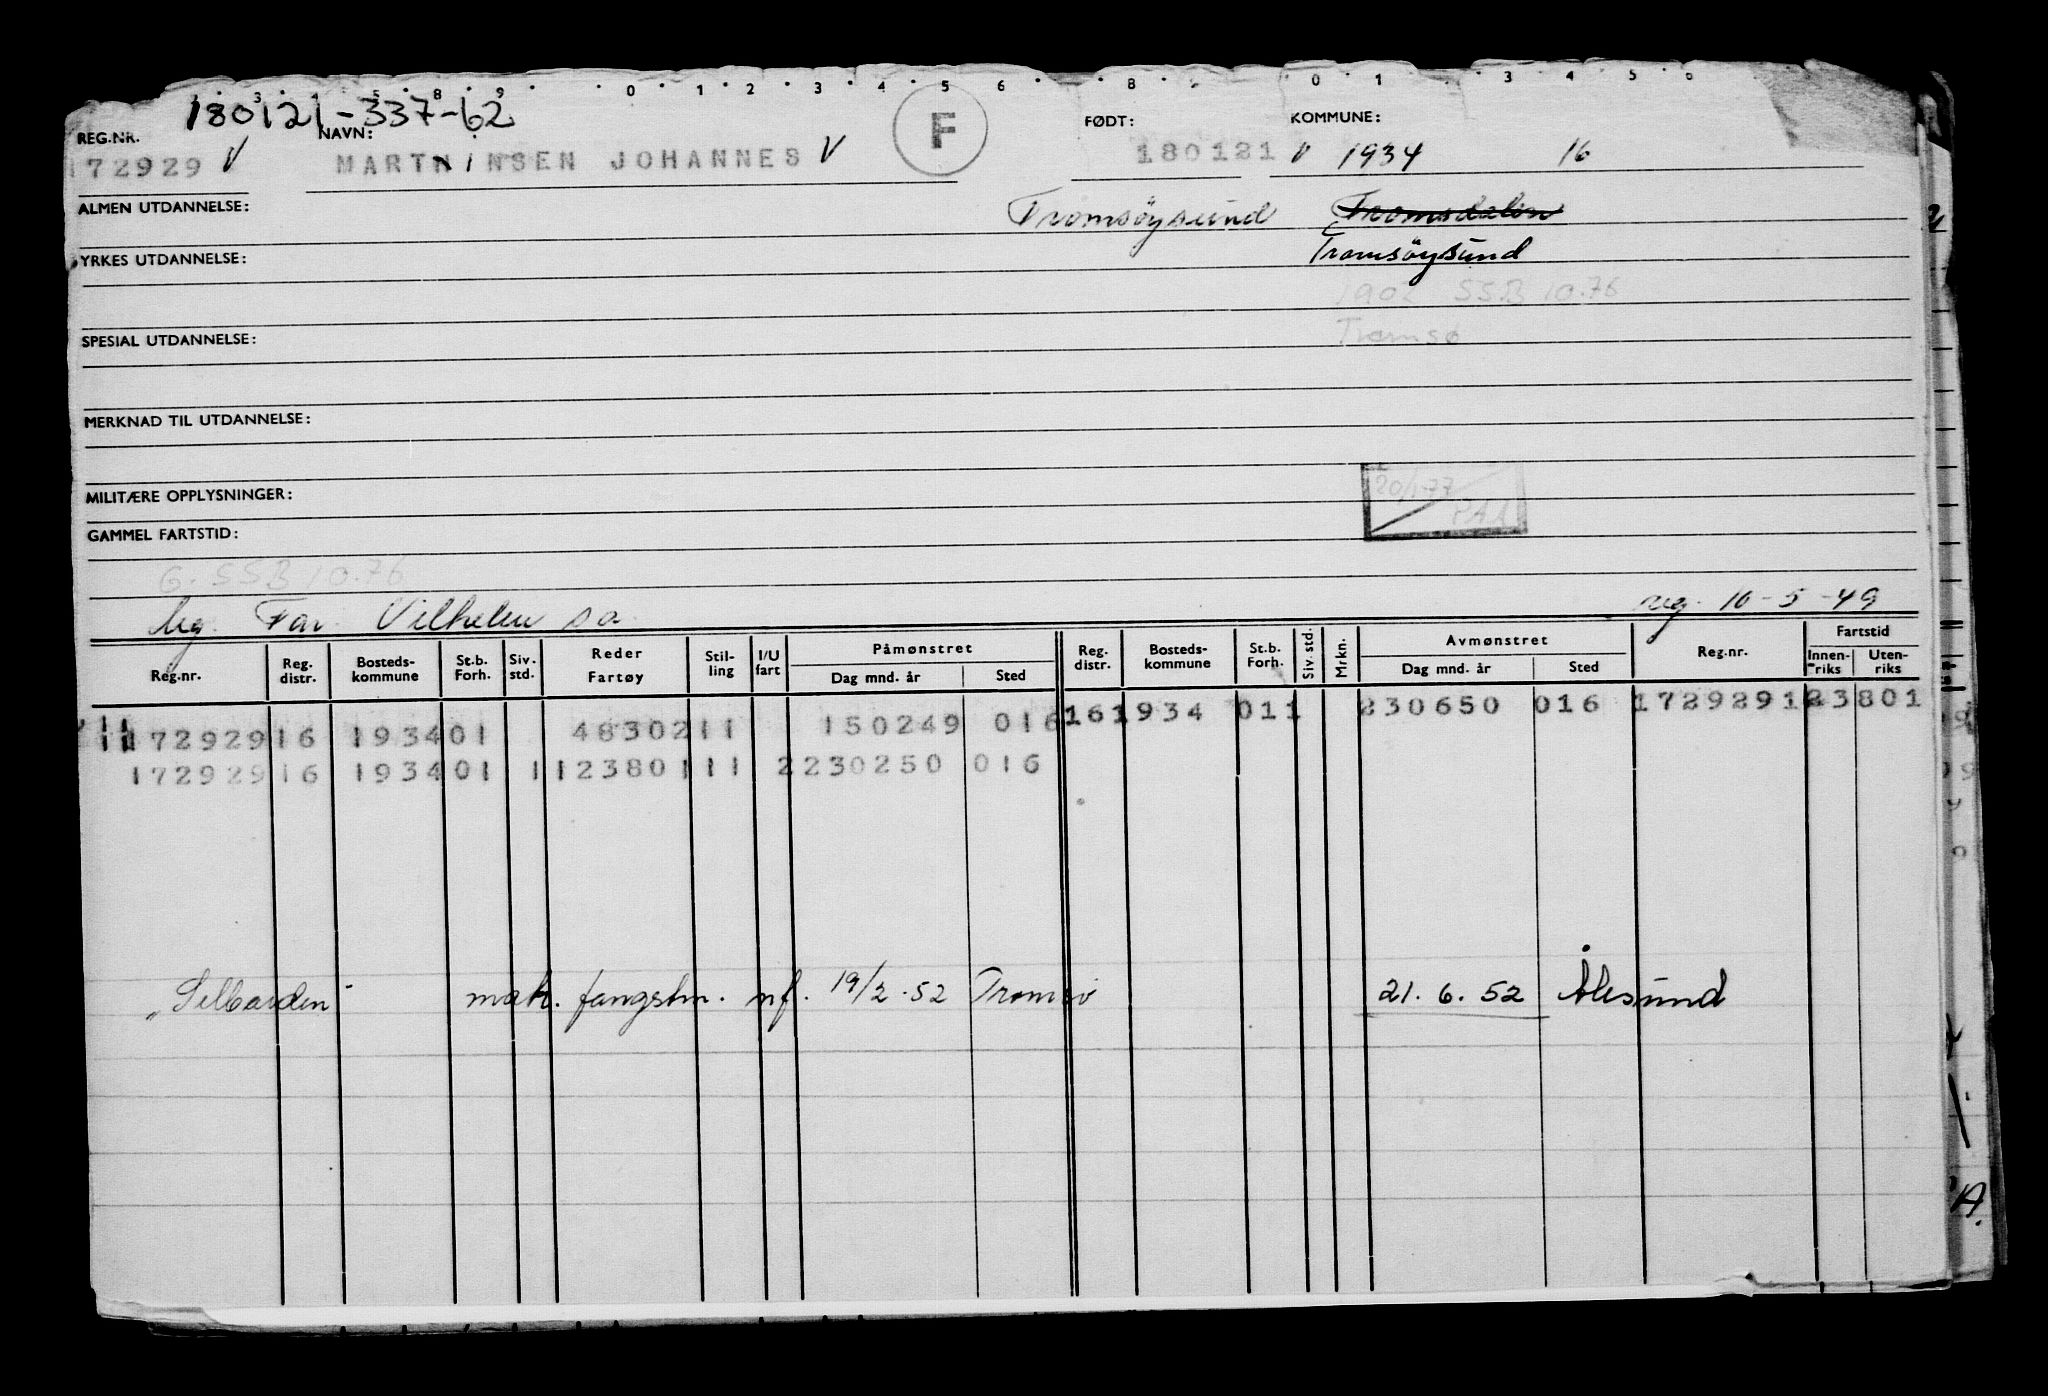 3 5 8 9 0 1 2 3 4 5 6 8 0 1 3 4 5 6
180121-337-62
REG.NR. NAVN: F FØDT: KOMMUNE:
172929 V MARTHINSEN JOHANNES V 180121 V 1934 16
ALMEN UTDANNELSE: Tromsöysund Tromsdalen
YRKES UTDANNELSE: Tromsöysund
1902 SSB 10.76
SPESIAL UTDANNELSE: Tromsø
MERKNAD TIL UTDANNELSE:
20/1-77
MILITÆRE OPPLYSNINGER:
GAMMEL FARTSTID:
G. SSB 10.76
Far Vilhelm s.a. reg. 10-5-49
Reg.nr. Reg. distr. Bosteds-kommune St.b. Forh. Siv. std. Reder Fartøy Stil-ling I/U fart Påmønstret Dag mnd. år Sted Reg. distr. Bosteds-kommune St.b. Forh. Siv. std. Mrkn. Avmønstret Dag mnd. år Sted Reg.nr. Fartstid Innen-riks Uten-riks
172929 16 1934 01 48302 11 150249 016 16 1934 011 230650 016 172929 1 123801
172929 16 1934 01 1 123801 11 2 230250 016
"Selbarden" mask. fangstm. nf. 19/2.52 Tromsø 21.6.52 Ålesund
A.